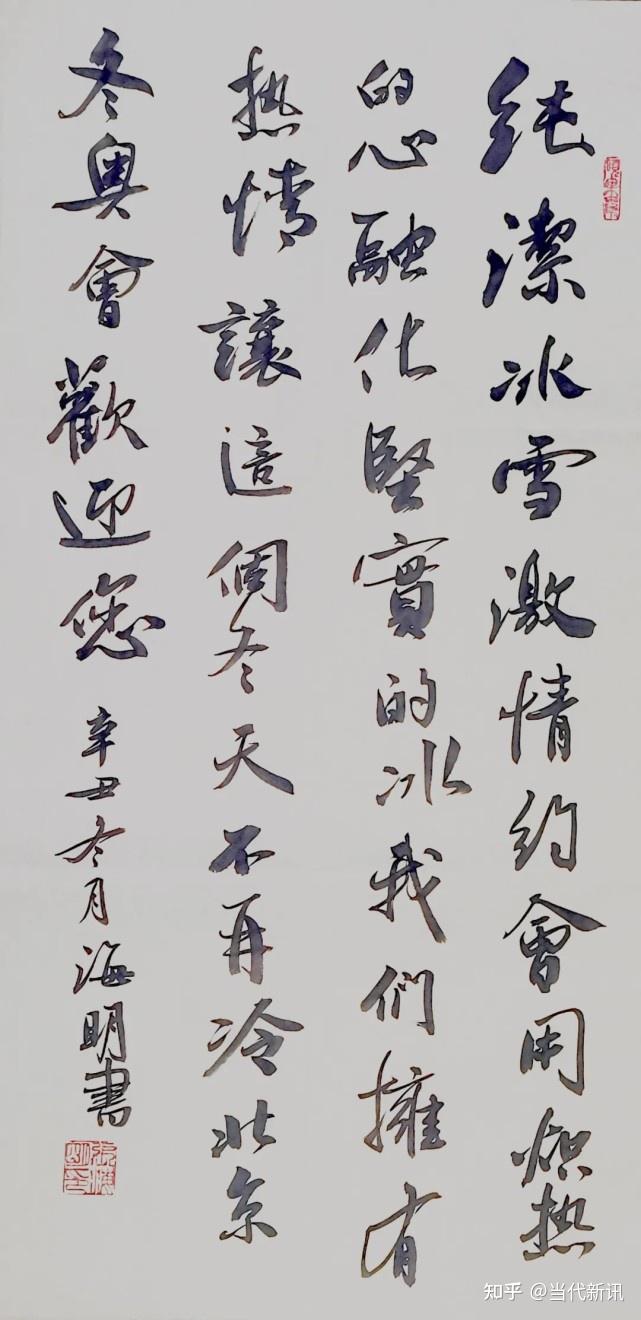 純潔冰雪激情約會用炽热
的心融化堅實的冰我們擁有
热情讓這個冬天不再冷北京
冬奥會歡迎您
辛丑冬月海明書
知乎 @当代新讯